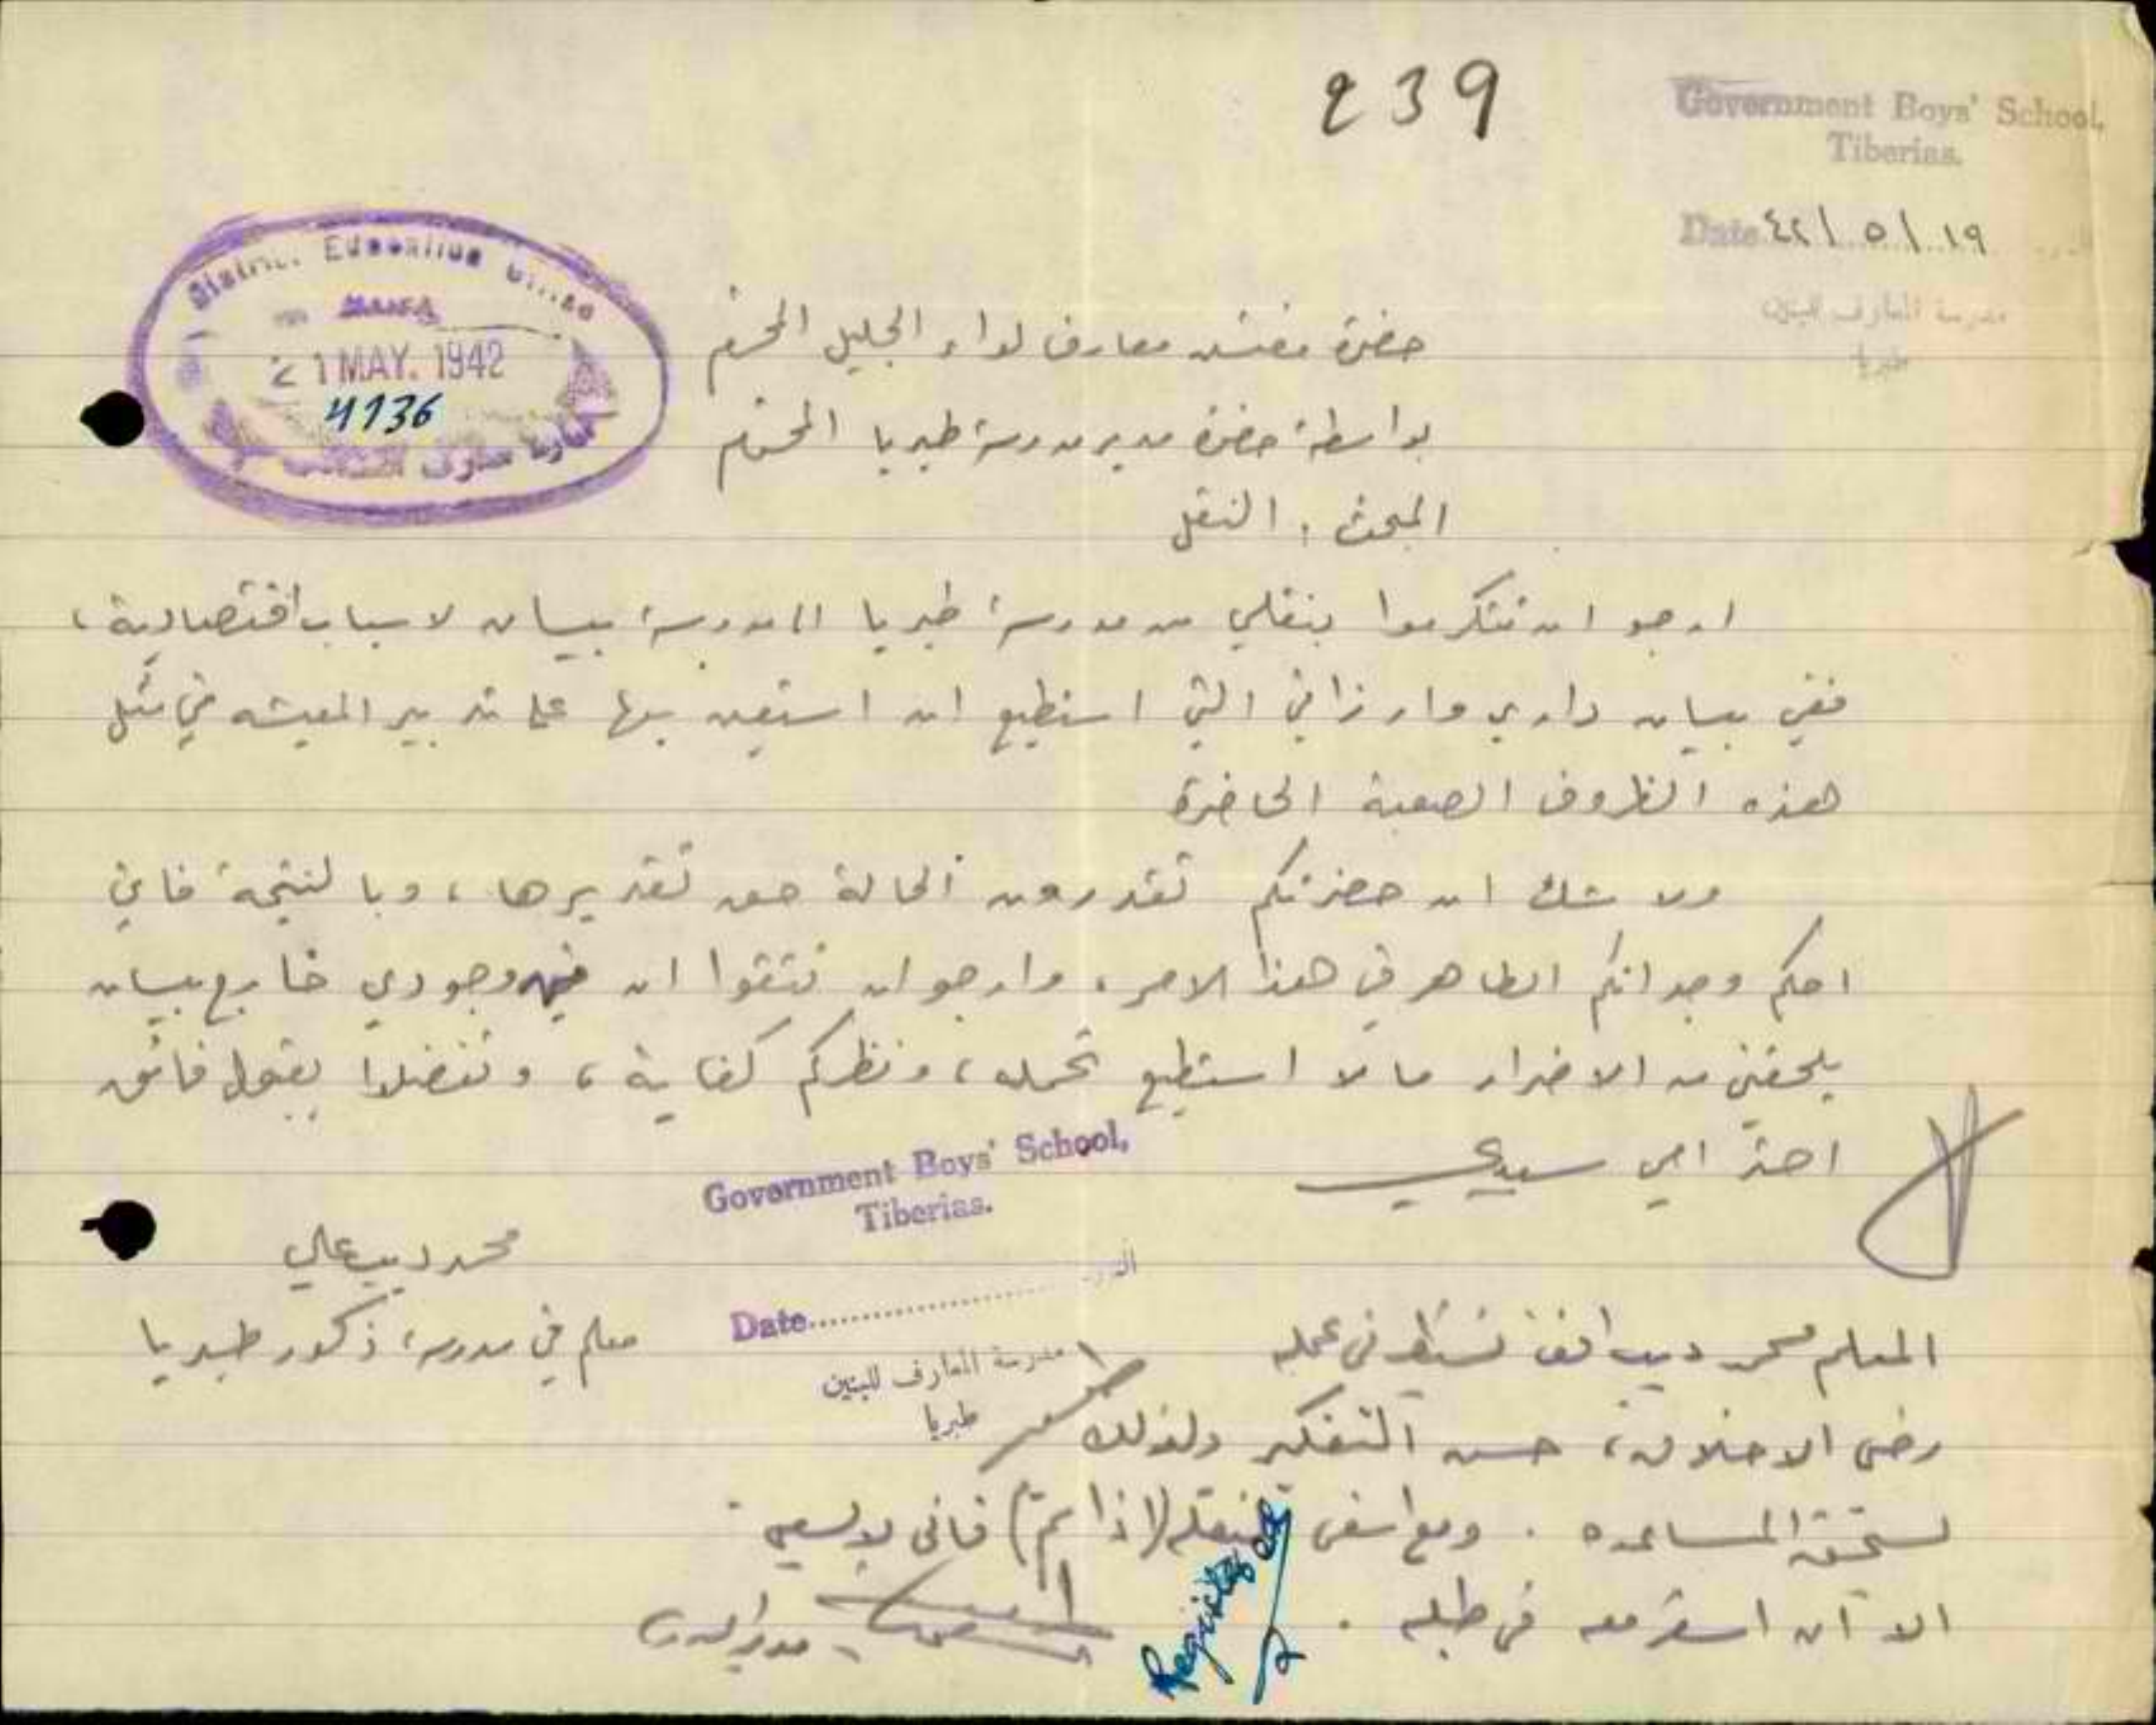 239
Government Boys' School,
Tiberias.
Date ١٩/٥/٤٢
مدرسة المعارف للبنين
طبريا
District Education Office
HAIFA
21 MAY. 1942
4136
حضرة مفتش معارف لواء الجليل المحترم
بواسطة حضرة مدير مدرسة طبريا المحترم
المبحث: النقل
ارجو ان تتكرموا بنقلي من مدرسة طبريا الى مدرسة بيسان لاسباب اقتصادية،
ففي بيسان داري وارزاقي التي استطيع ان استعين بها على تدبير المعيشه في مثل
هذه الظروف الصعبة الحاضرة
ولا شك ان حضرتكم تقدرون الحالة حق تقديرها، وبالنتيجة فاني
احكم وجدانكم الطاهر في هذا الامر، وارجو ان تثقوا ان وجودي خارج بيسان
يلحقني من الاضرار ما لا استطيع تحمله، ونظركم كفاية، وتفضلوا بقبول فائق
احترامي سيدي
محمد ديب علي
معلم في مدرسة ذكور طبريا
Government Boys' School,
Tiberias.
Date
مدرسة المعارف للبنين
طبريا
المعلم محمد ديب افندي نشيط في عمله
رضي الاخلاق، حسن التفكير ولذلك
يستحق المساعده. ومع اسفي لنقله (اذا تم) فاني لا يسعني
الا ان اشترك معه في طلبه.
مدير المدرسة
Registry